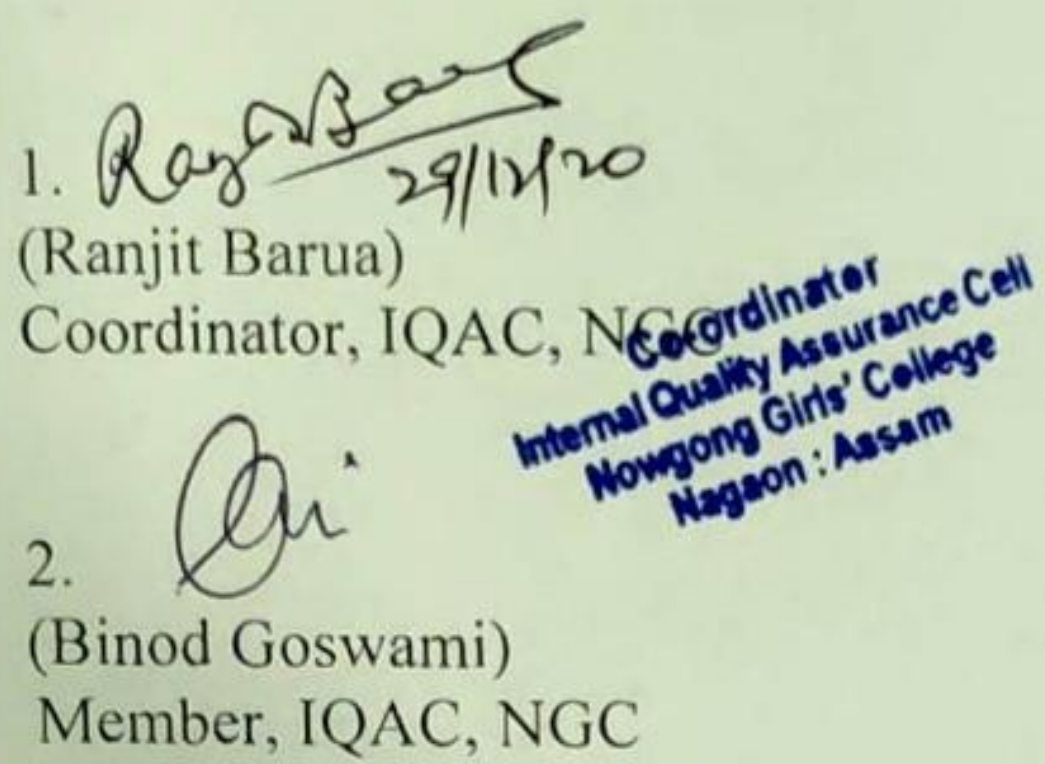 1.
29/12/20
(Ranjit Barua)
Coordinator, IQAC, NGC
Coordinator
Internal Quality Assurance Cell
Nowgong Girls' College
Nagaon : Assam
2.
(Binod Goswami)
Member, IQAC, NGC